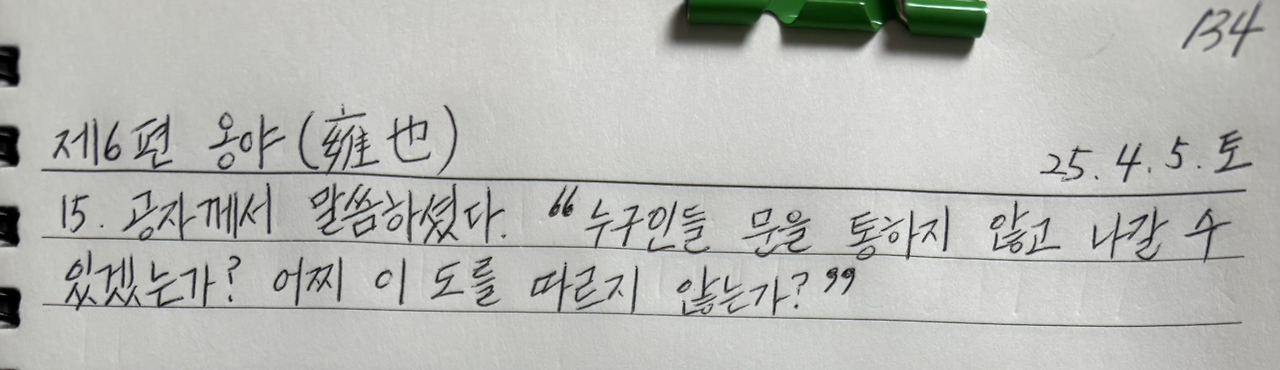 134
제6편 옹야(雍也)
25. 4. 5. 토
15. 공자께서 말씀하셨다. "누구인들 문을 통하지 않고 나갈 수
있겠는가? 어찌 이 도를 따르지 않는가?"